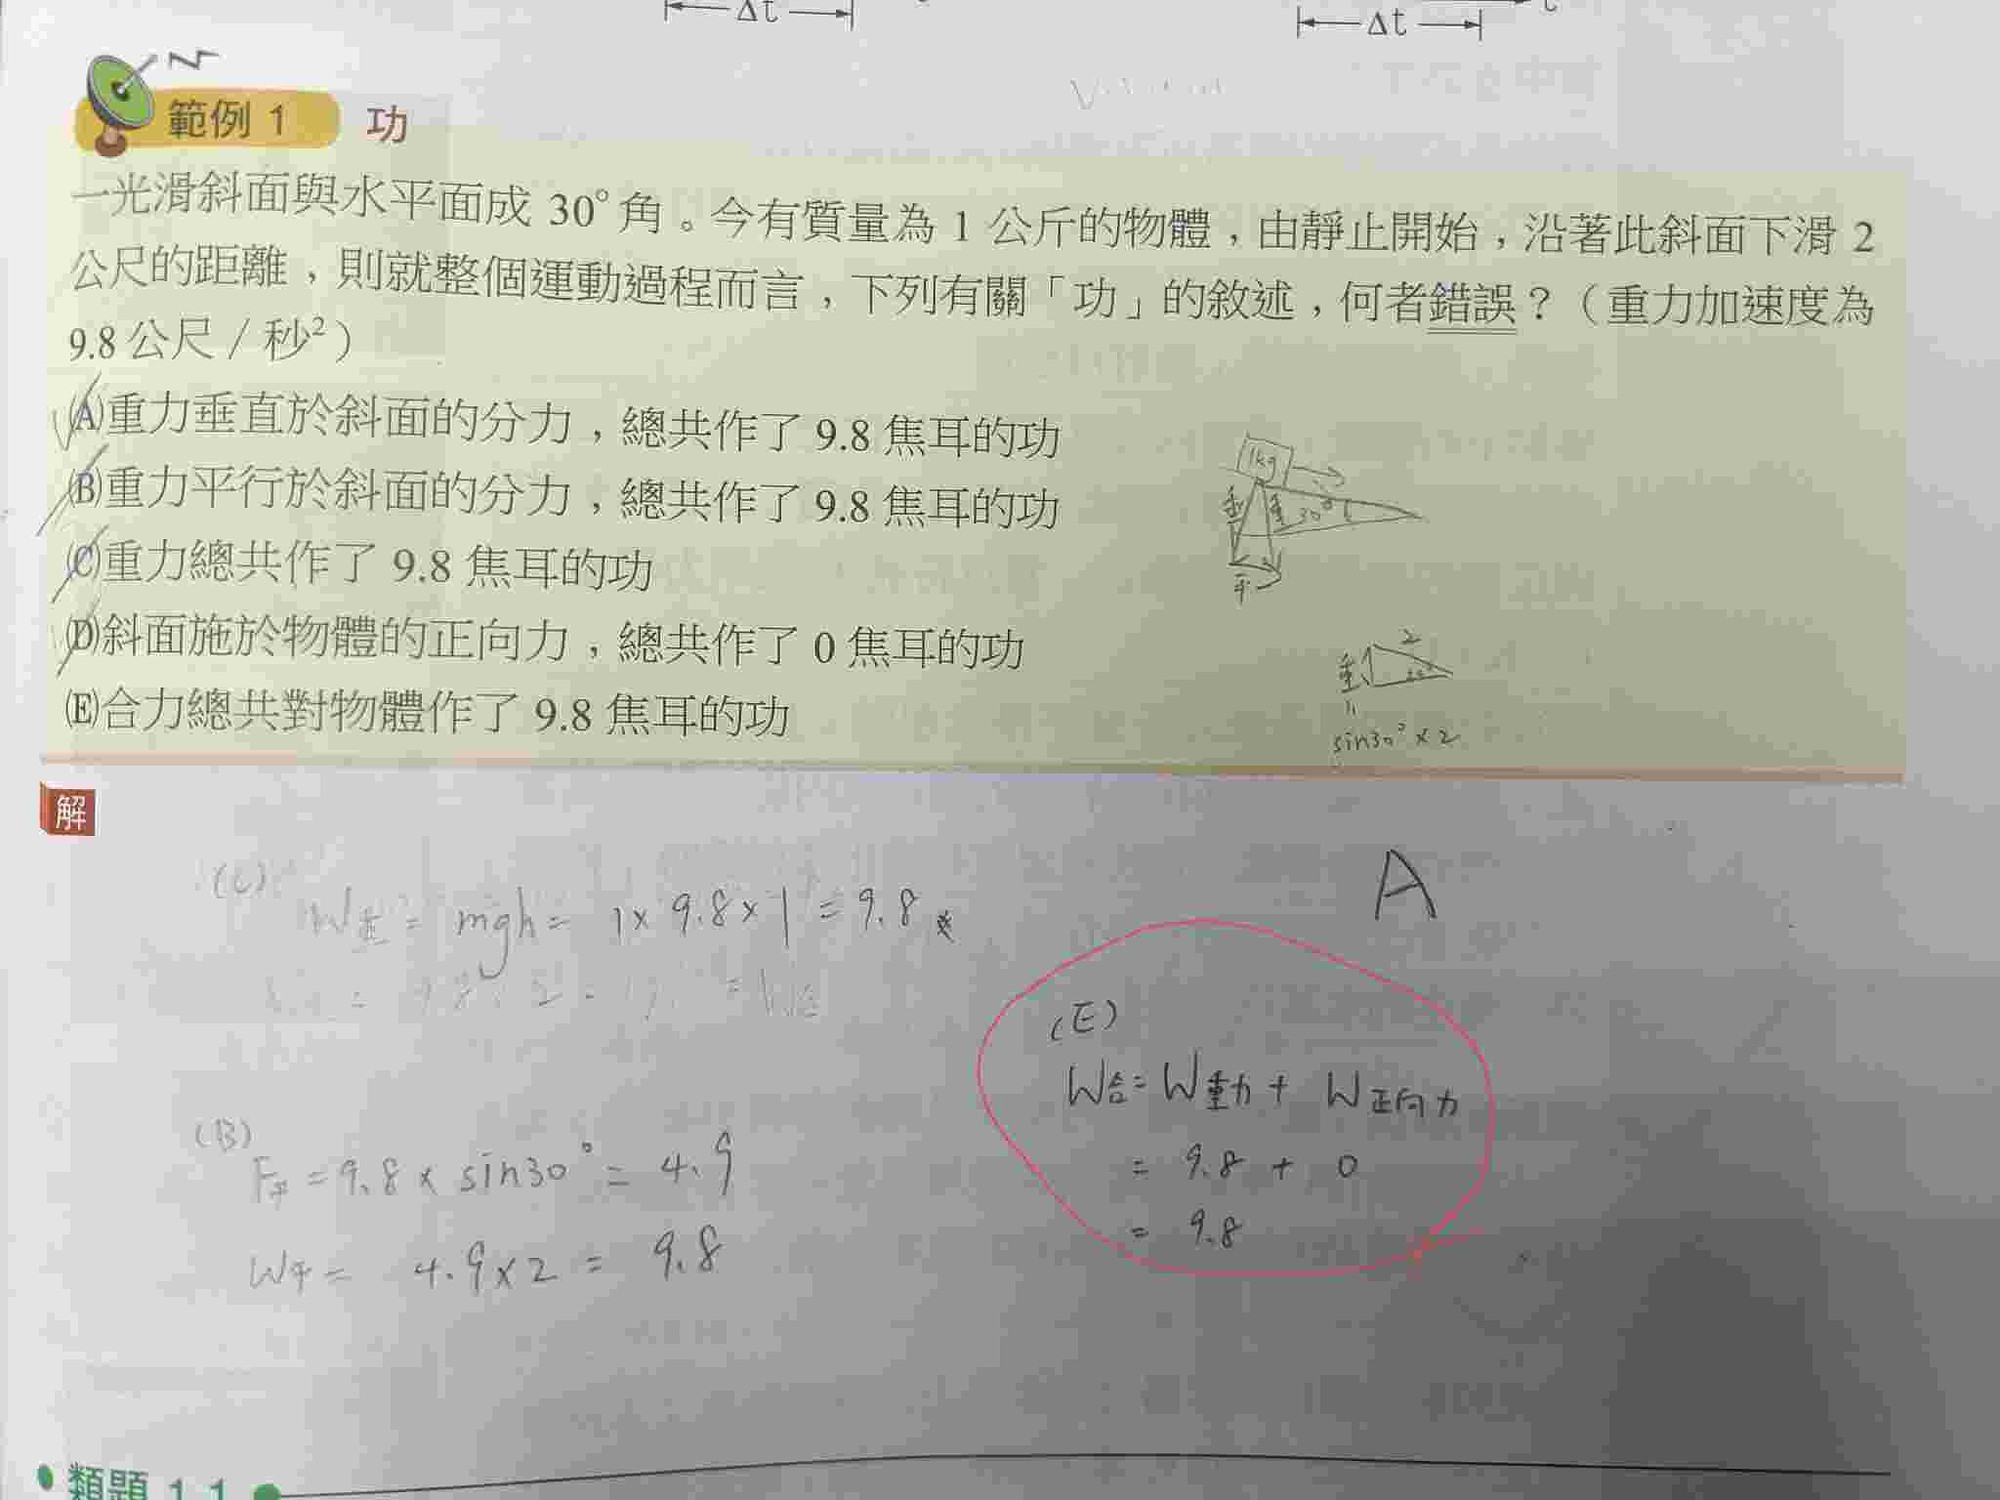 Δt
Δt
範例 1 功
一光滑斜面與水平面成 30° 角。今有質量為 1 公斤的物體，由靜止開始，沿著此斜面下滑 2
公尺的距離，則就整個運動過程而言，下列有關「功」的敘述，何者錯誤？（重力加速度為
9.8 公尺 / 秒²）
(A)重力垂直於斜面的分力，總共作了 9.8 焦耳的功
(B)重力平行於斜面的分力，總共作了 9.8 焦耳的功
(C)重力總共作了 9.8 焦耳的功
(D)斜面施於物體的正向力，總共作了 0 焦耳的功
(E)合力總共對物體作了 9.8 焦耳的功
1kg
30°
平
2
sin30° × 2
解
A
(C)
W重 = mgh = 1 × 9.8 × 1 = 9.8
(E)
W合 = W重力 + W正向力
= 9.8 + 0
= 9.8
(B)
F平 = 9.8 × sin30° = 4.9
W平 = 4.9 × 2 = 9.8
類題 1.1